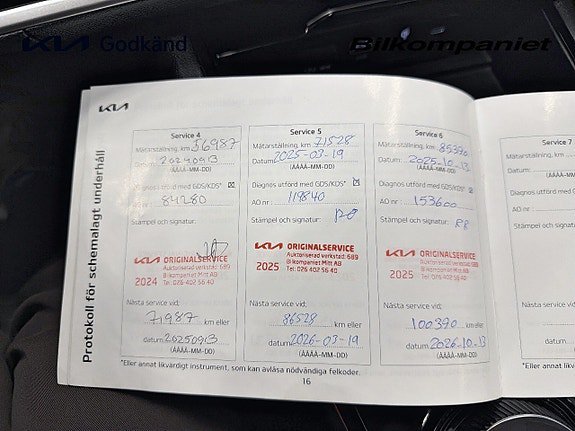 KIA Godkänd
Bilkompaniet
KIA
Protokoll för schemalagt underhåll
Service 4
Mätarställning, km 56987
Datum: 20240913
(ÅÅÅÅ-MM-DD)
Diagnos utförd med GDS/KDS*
AO nr 84280
Stämpel och signatur:
KIA ORIGINALSERVICE
Auktoriserad verkstad: 689
Bilkompaniet Mitt AB
2024 Tel: 026 402 56 40
Nästa service vid:
71987 km eller
datum 20250913
(ÅÅÅÅ-MM-DD)
Service 5
Mätarställning, km 71528
Datum: 2025-03-19
(ÅÅÅÅ-MM-DD)
Diagnos utförd med GDS/KDS*
AO nr: 119840
Stämpel och signatur:
KIA ORIGINALSERVICE
Auktoriserad verkstad: 689
2025 Bilkompaniet Mitt AB
Tel: 026 402 56 40
Nästa service vid:
86528 km eller
datum 2026-03-19
(ÅÅÅÅ-MM-DD)
Service 6
Mätarställning, km 85370
Datum: 2025-10-13
(ÅÅÅÅ-MM-DD)
Diagnos utförd med GDS/KDS*
AO nr 153600
Stämpel och signatur:
KIA ORIGINALSERVICE
Auktoriserad verkstad: 689
2025 Bilkompaniet Mitt AB
Tel: 026 402 56 40
Nästa service vid:
100370 km eller
datum 2026-10-13
(ÅÅÅÅ-MM-DD)
*Eller annat likvärdigt instrument, som kan avläsa nödvändiga felkoder.
16
Service 7
Mätarställning,
Datum:
Diagnos utförd
AO nr
Stämpel och
Nästa service
datum
*Eller annat likvär